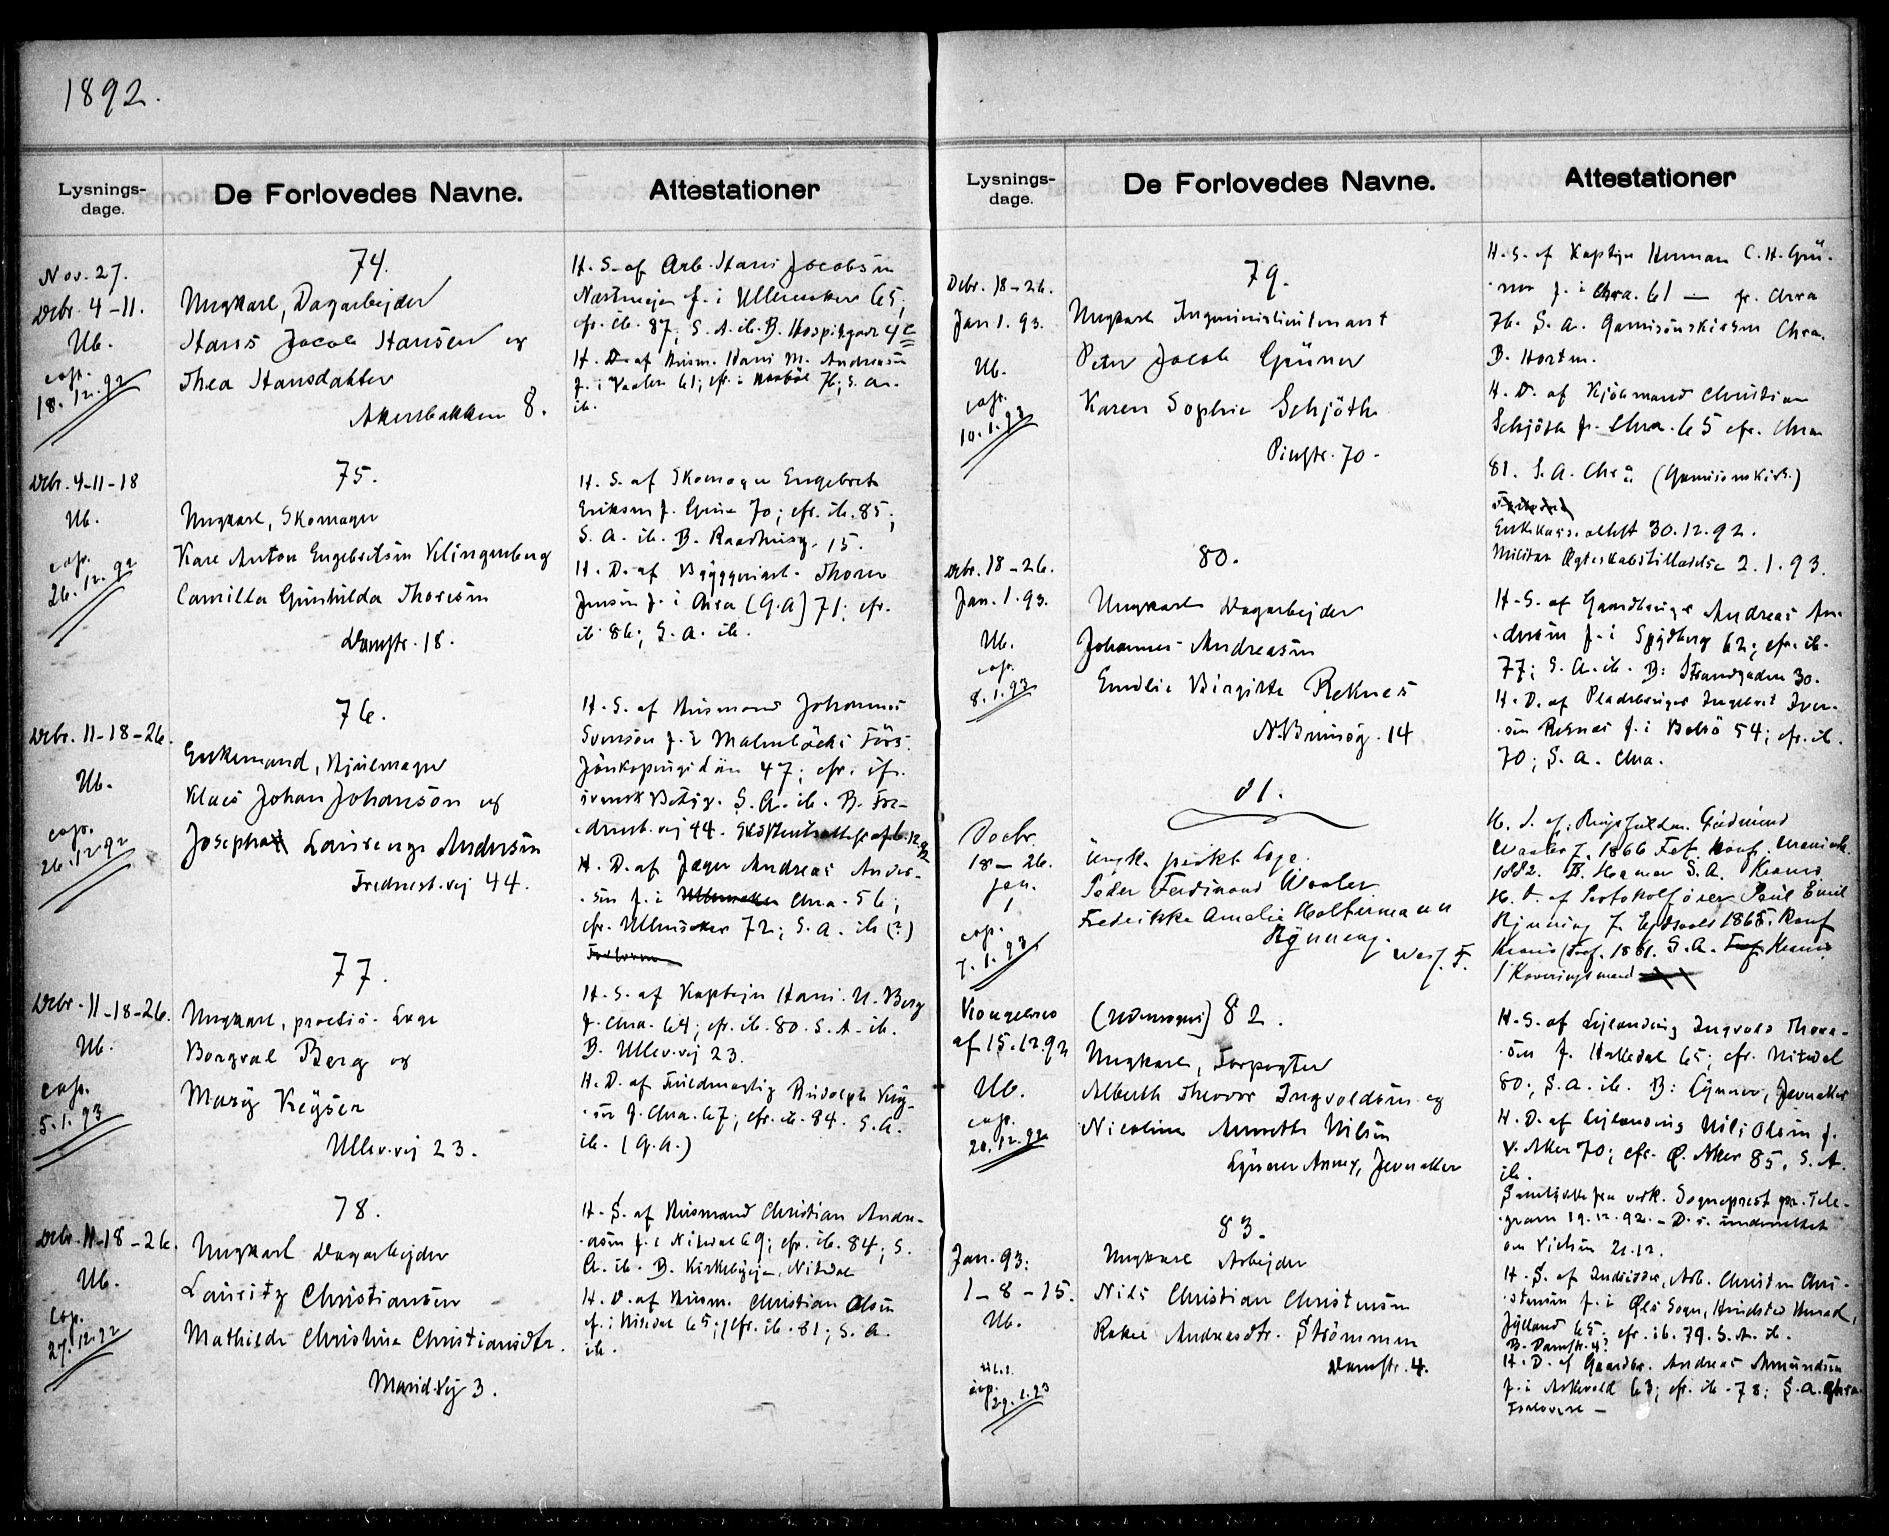 1892.
Lysnings-
dage.
De Forlovedes Navne.
Attestationer
Nov. 27.
Dcbr. 4-11.
Ub.
cop.
18.12.92
74.
Ungkarl, Dagarbejder
Hans Jacob Hansen og
Thea Hansdatter
Akersbakken 8.
H. S. af Arb. Hans Jacobsen
f. i Ullensaker 65;
cfr. ib. 87; S. A. ib. B. Hospitsgade 4c
H. D. af Husm. Hans M. Andersen
f. i Vaaler 61; cfr. i 76; S. A.
ib.
Dcbr. 4-11-18
Ub.
cop.
26.12.92
75.
Ungkarl, Skomager
Kare Anton Engebretsen Klingenberg
Camilla Gunhilda Thorsen
Damstr. 18.
H. S. af Skomager Engebret
Eriksen f. Grue 70; cfr. ib. 85;
S. A. ib. B. Raadhusg. 15.
H. D. af Bryggeriarb. Thorer
Jensen f. i Chra (G.A) 71; cfr.
ib 86; S. A. ib.
Dcbr. 11-18-26.
Ub.
cop.
26.12.92
76.
Enkemand, Hjulmager
Klaes Johan Johanson og
Josepha Laurenze Andersen
Fredensb.vej 44.
H. S. af Husmand Johannes
Svenson f. i Malmbäcks Förs.
Jönkopings Län 47; cfr. if.
svensk Betyg. S. A. ib. B. Fre-
densb. vej 44.
H. D. af Jæger Andreas Ander-
sen f. i Ullensaker Chra. 56;
cfr. Ullensaker 72; S. A. ib (?)
Dcbr. 11-18-26.
Ub.
cop.
5.1.93
77.
Ungkarl, practis. Læge
Borgval Berg og
Mary Keyser
Ullev.vej 23.
H. S. af Kaptejn Hans. U. Berg
f. Chra. 64; cfr. ib. 80. S. A. ib.
B. Ullev.vej 23.
H. D. af Fuldmægtig Rudolph Key-
ser f. Chra. 67; cfr. ib. 84. S. A.
ib. (G.A.)
Dcbr. 11-18-26.
Ub.
cop.
27.12.92
78.
Ungkarl Dagarbejder
Lauritz Christiansen
Mathilde Christine Christiansdtr.
Marid.vej 3.
H. S. af Husmand Christian Andre-
asen f. i Nitedal 69; cfr. ib. 84; S.
A. ib. B. Kirkebyeje, Nitedal
H. D. af Husm. Christian Olsen
f. i Nitedal 65; cfr. ib. 81; S. A.
ib.
Lysnings-
dage.
De Forlovedes Navne.
Attestationer
Dcbr. 18-26.
Jan 1. 93.
Ub.
cop.
10.1.93
79.
Ungkarl Ingenieurlieutenant
Peter Jacob Grüner
Karen Sophie Schjöth
Pilestr. 70.
H. S. af Kaptejn Herman C. H. Grü-
ner f. i Chra. 61 — fr. Chra
76. S. A. Garnisonskirken Chra.
B. Horten.
H. D. af Kjöbmand Christian
Schjöth f. Chra. 65 cfr. Chra
81. S. A. Chra: (Garnisonskirk.)
Enkekass.attest 30.12.92.
Militær Ægteskabstilladelse 2.1.93.
Dcbr. 18-26.
Jan. 1. 93.
Ub.
cop.
8.1.93
80.
Ungkarl Dagarbejder
Johannes Andreasen
Emilie Birgitte Reknes
N. Brunsg. 14
H. S. af Gaardbruger Andreas An-
dersen f. i Spydberg 62; cfr. ib.
77; S. A. ib. B: Strandgaden 30.
H. D. af Pladsbruger Ingebret Iver-
sen Reknes f. i Bolsö 54; cfr. ib.
70; S. A. Chra.
Decbr.
18-26.
Jan.
1
cop.
7.1.93
81.
Ungk. prakt. Læge.
Peder Ferdinand Waaler
Fredrikke Amalie Holtermann
Rynning.
H. S. af Gudmund
Waaler f. 1866
1882. B. Hamar S. A.
H. D. af Protokolfører Paul Emil
Rynning f. Eidsvold 1865. Konf
1881. S. A.
Kongebrev
af 15.12.92
Ub.
cop.
20.12.92
(Udensogns) 82.
Ungkarl, Forpagter
Alberth Theodor Ingvoldsen og
Nicoline Annette Nilsen
Lynner Annex, Jevnaker
H. S. af Lejlænding Ingvold Thora-
sen f. Hakkedal 65; cfr. Nitedal
80; S. A. ib. B: Lynner, Jevnaker
H. D. af Lejlænding Nils Olsen f.
V. Aker 70; cfr. Ø. Aker 85. S. A.
ib.
Samtykke fra vedk. Sogneprest pr. Tele-
gram 19.12.92. - D. s. underrettet
om Vielsen 21.12.
Jan. 93:
1-8-15.
Ub.
cop.
29.1.93
83.
Ungkarl Arbejder
Nils Christian Christensen
Rakel Andreasdtr. Strömmen
Damstr. 4.
H. S. af Indsidder, Arb. Christen Chri-
stensen f. i Øls Sogn, Hindsted Herred,
Jylland 65; cfr. ib. 79. S. A. ib.
B. Damstr. 4?
H. D. af Gaardbr. Andreas Amundsen
f. i Askvold 63; cfr. ib. 78: S. A. Chra.
Forlovere —